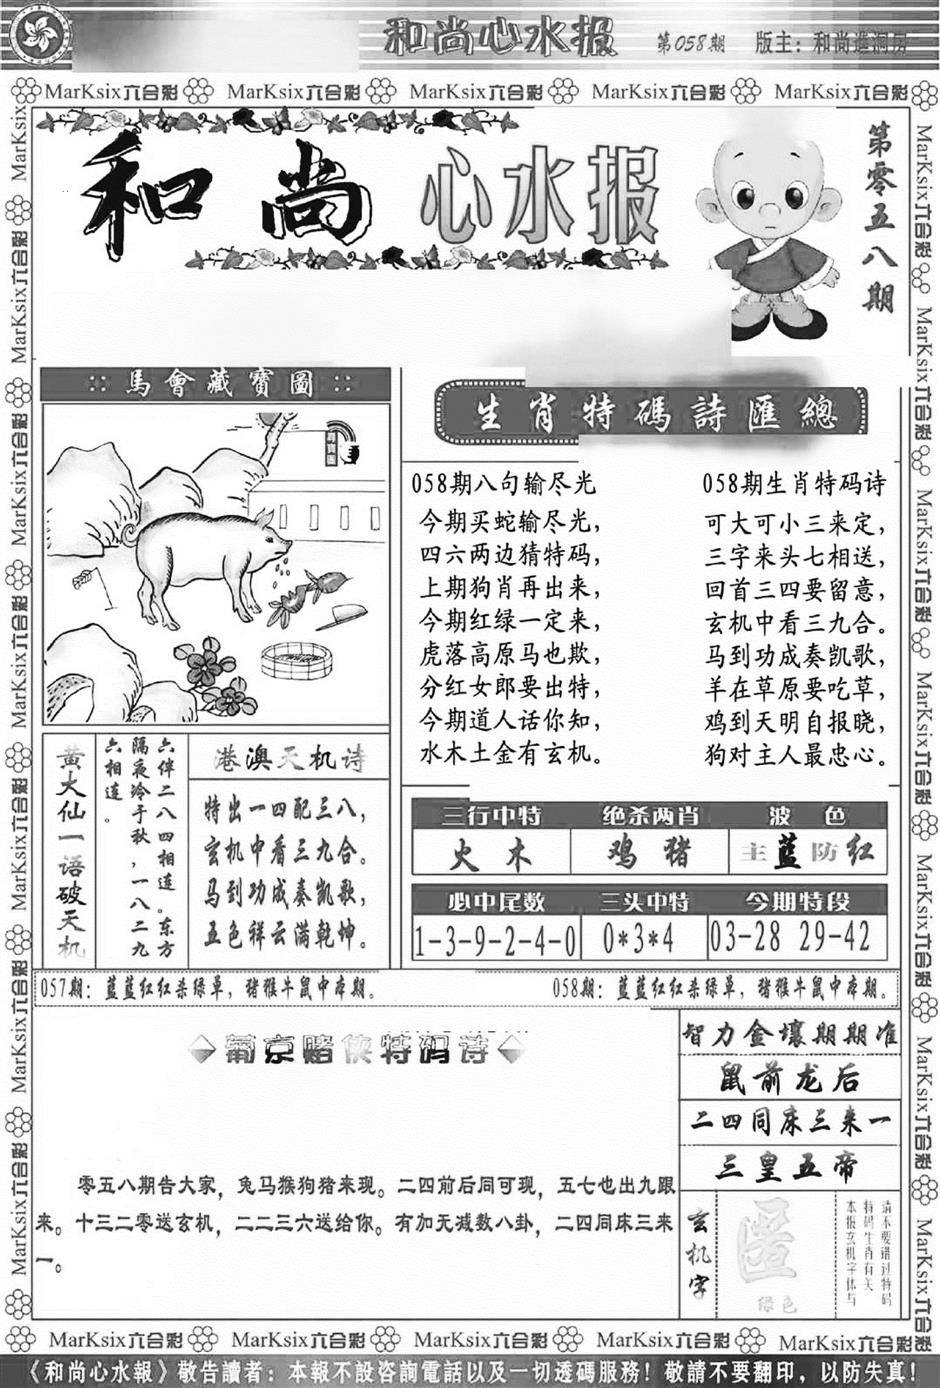 和尚心水报 第058期 版主：和尚進洞房
MarKsix六合彩 MarKsix六合彩 MarKsix六合彩 MarKsix六合彩 MarKsix六合彩
和尚心水报
第零五八期
馬會藏寶圖
生肖特碼詩匯總
058期八句输尽光
今期买蛇输尽光，
四六两边猜特码，
上期狗肖再出来，
今期红绿一定来，
虎落高原马也欺，
分红女郎要出特，
今期道人话你知，
水木土金有玄机。
058期生肖特码诗
可大可小三来定，
三字来头七相送，
回首三四要留意，
玄机中看三九合。
马到功成奏凯歌，
羊在草原要吃草，
鸡到天明自报晓，
狗对主人最忠心。
黄大仙一语破天机
六伴二八四相连。东方
隔夜冷于秋，一八二九
六相连。
港澳天机诗
特出一四配三八，
玄机中看三九合。
马到功成奏凯歌，
五色祥云满乾坤。
三行中特 绝杀两肖 波色
火木 鸡猪 主蓝防红
必中尾数 三头中特 今期特段
1-3-9-2-4-0 0*3*4 03-28 29-42
057期：蓝蓝红红杀绿单，猪猴牛鼠中本期。
058期：蓝蓝红红杀绿单，猪猴牛鼠中本期。
葡京赌侠特码诗
零五八期告大家，兔马猴狗猪来现。二四前后同可现，五七也出九跟
来。十三二零送玄机，二二三六送给你。有加无减数八卦，二四同床三来
一。
智力金壤期期准
鼠前龙后
二四同床三来一
三皇五帝
玄机字
匿
绿色
请不要错过特码
特码生肖有关
本报玄机字体与
MarKsix六合彩 MarKsix六合彩 MarKsix六合彩 MarKsix六合彩 MarKsix六合彩
《和尚心水報》敬告讀者：本報不設咨詢電話以及一切透碼服務！敬請不要翻印，以防失真！